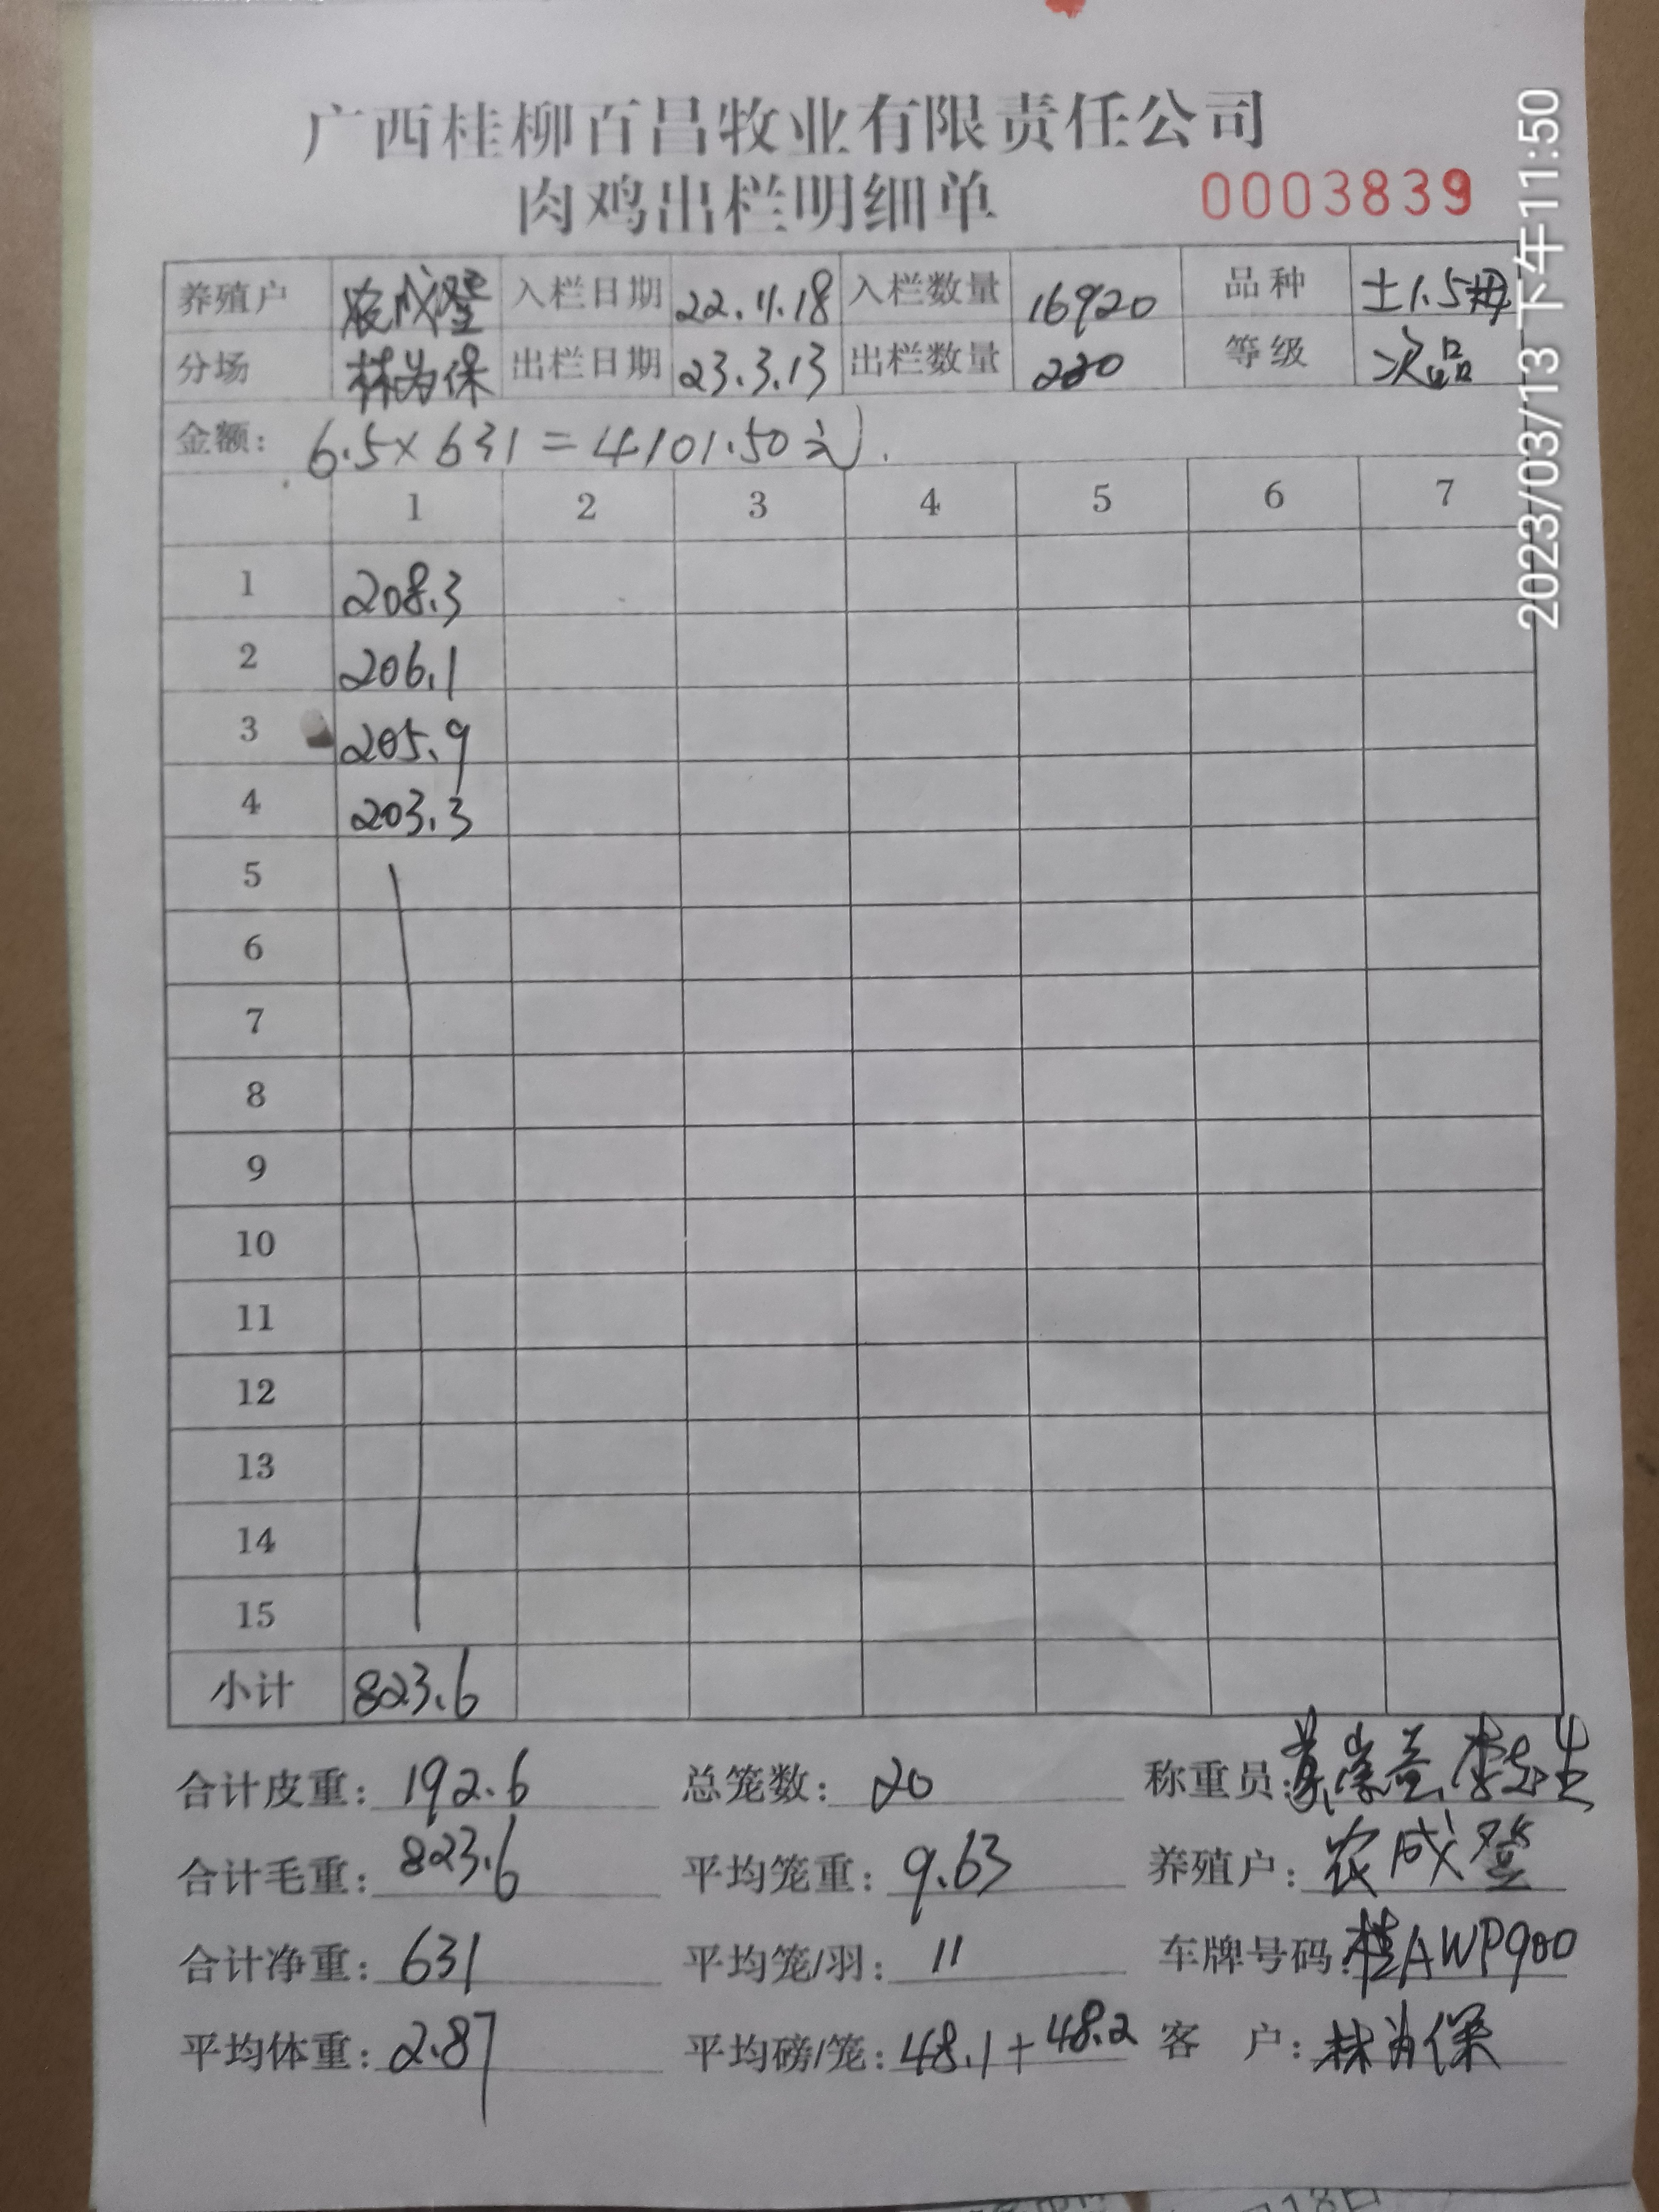 广西桂柳百昌牧业有限责任公司
肉鸡出栏明细单 0003839
养殖户 农成登 入栏日期 22.11.18 入栏数量 16920 品种 土1.5母
分场 林为保 出栏日期 23.3.13 出栏数量 220 等级 次品
金额: 6.5×631=4101.50元.
1 2 3 4 5 6 7
1 208.3
2 206.1
3 205.9
4 203.3
5
6
7
8
9
10
11
12
13
14
15
小计 823.6
合计皮重: 192.6 总笼数: 20 称重员:
合计毛重: 823.6 平均笼重: 9.63 养殖户: 农成登
合计净重: 631 平均笼/羽: 11 车牌号码: 桂AWP900
平均体重: 2.87 平均磅/笼: 48.1+48.2 客 户: 林为保
2023/03/13 下午11:50